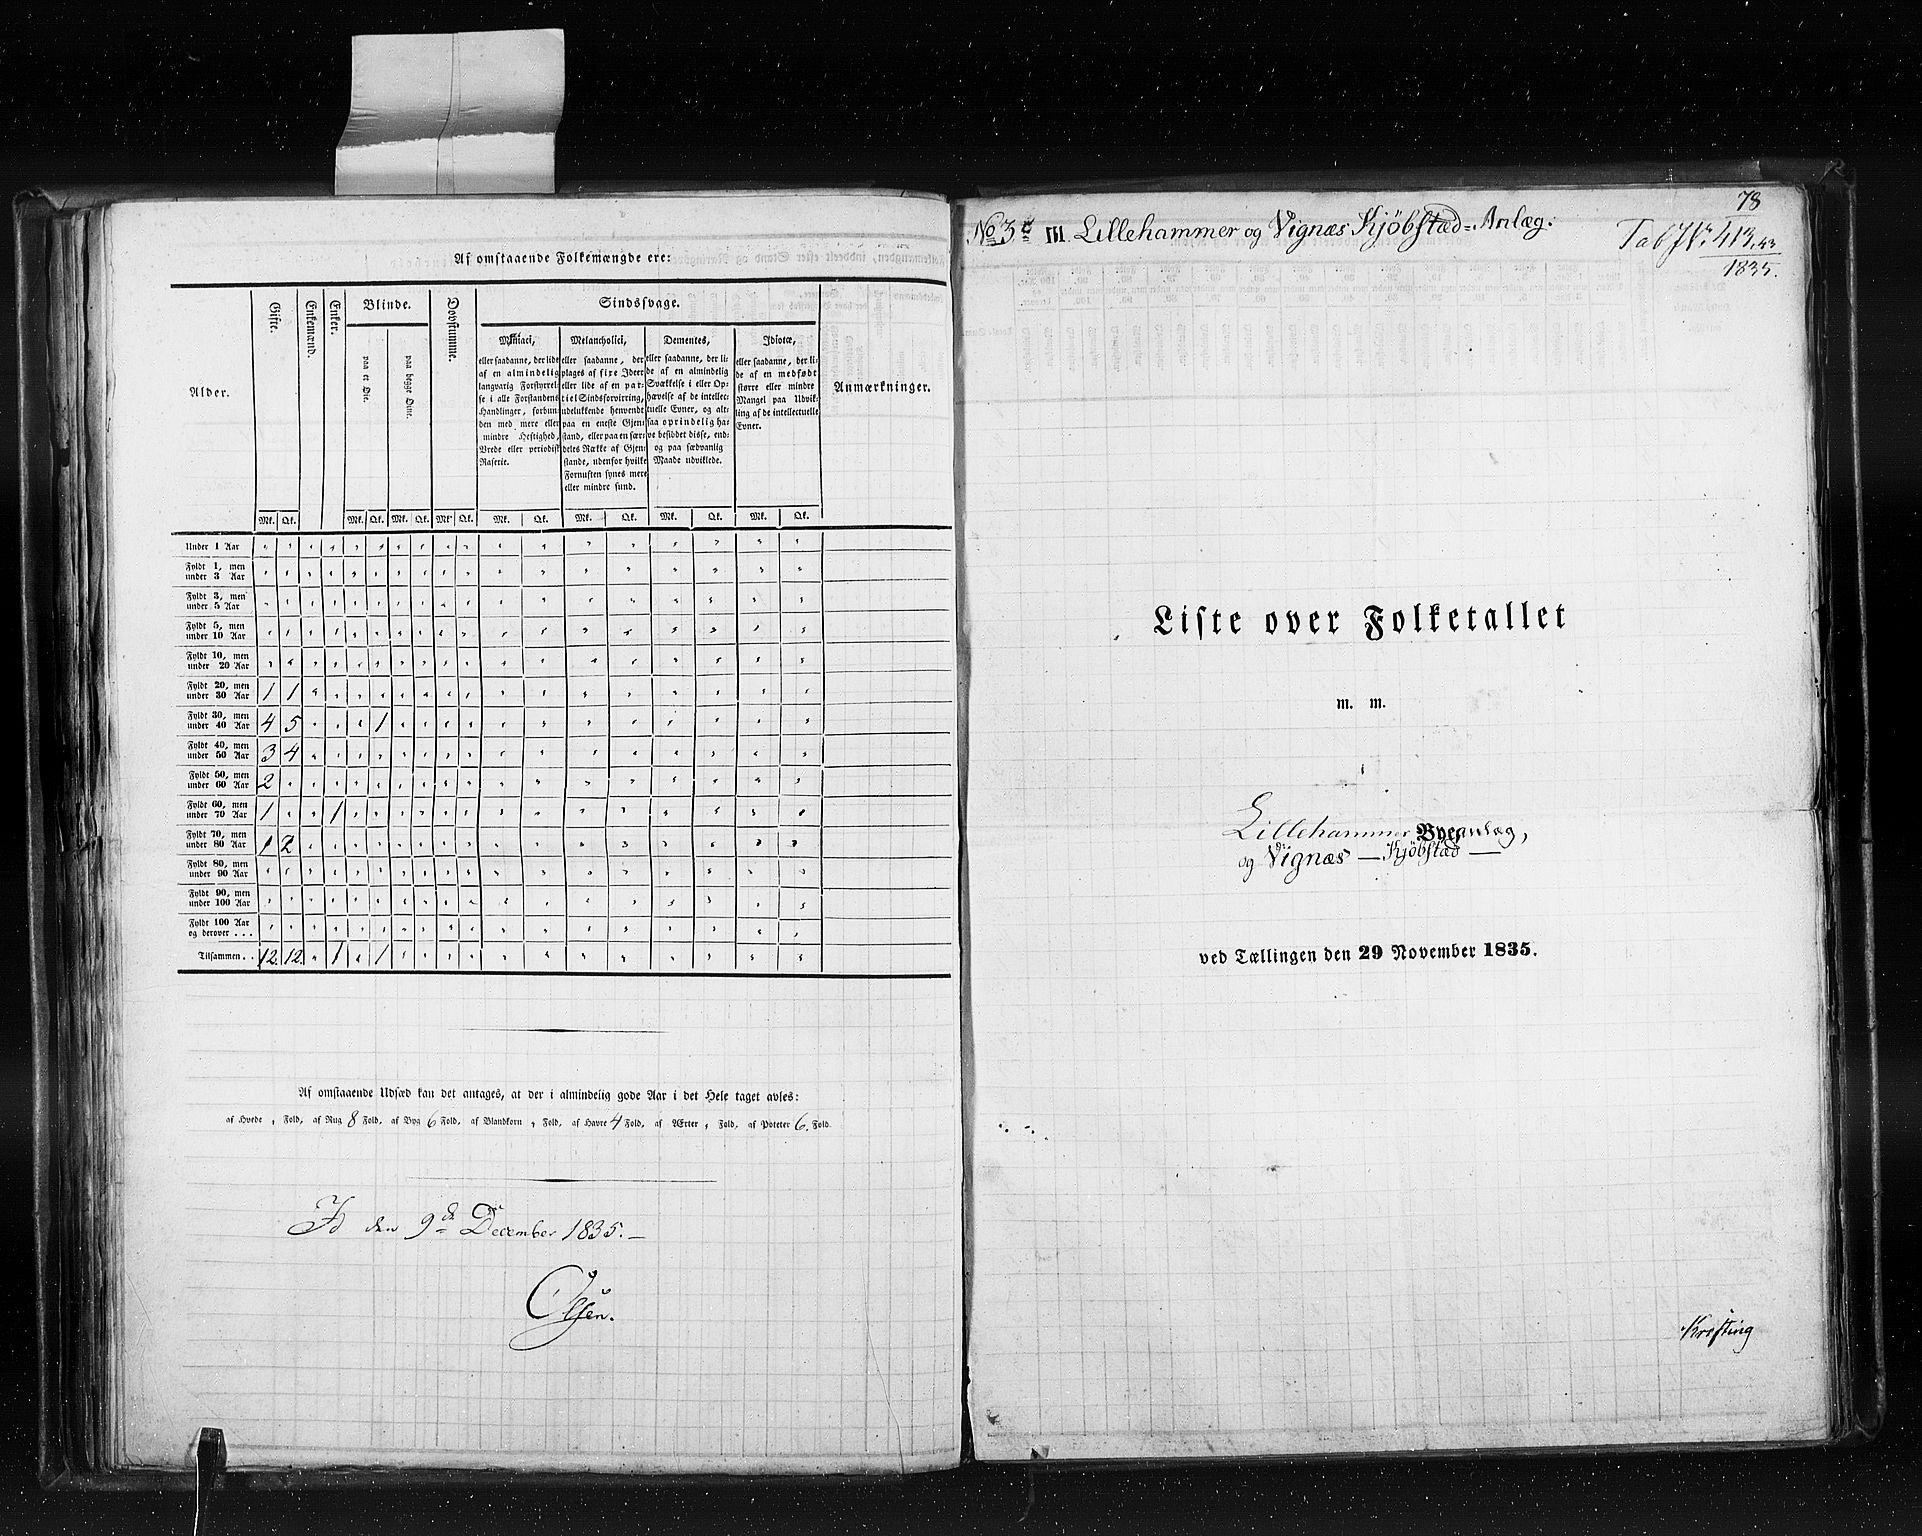 Af omstaaende Folkemængde ere:
Alder.
Gifte.
Enkemænd.
Enker.
Blinde.
paa et Øie.
paa begge Øine.
Døvstumme.
Sindssvage.
Maniaci,
eller saadanne, der lide
af en almindelig
langvarig Forstyrrel-
se i alle Forstandens
Handlinger, forbun-
den med mere eller
mindre Heftighed,
Vrede eller periodisk
Raserie.
Melancholici,
eller saadanne, der
plages af fixe Ideer
eller lide af en par-
tiel Sindsforvirring,
udelukkende henvendt
paa en eneste Gjen-
stand, eller paa en sær-
deles Række af Gjen-
stande, udenfor hvilke
Fornuften synes mere
eller mindre sund.
Dementes,
eller saadanne, der li-
de af en almindelig
Svækkelse i eller Op-
hævelse af de intellec-
tuelle Evner, og alt-
saa oprindelig ha-
ve besiddet disse, end-
og paa sædvanlig
Maade udviklede.
Idiotæ,
eller saadanne, der li-
de af en medfødt
større eller mindre
Mangel paa Udvik-
ling af de intellectuelle
Evner.
Anmærkninger.
Mk. Qk. Mk. Qk. Mk. Qk. Mk. Qk. Mk. Qk. Mk. Qk. Mk. Qk. Mk. Qk.
Under 1 Aar
Fyldt 1, men
under 3 Aar
Fyldt 3, men
under 5 Aar
Fyldt 5, men
under 10 Aar
Fyldt 10, men
under 20 Aar
Fyldt 20, men
under 30 Aar 1 1
Fyldt 30, men
under 40 Aar 4 5 1
Fyldt 40, men
under 50 Aar 3 4
Fyldt 50, men
under 60 Aar 2
Fyldt 60, men
under 70 Aar 1 1
Fyldt 70, men
under 80 Aar 1 2
Fyldt 80, men
under 90 Aar
Fyldt 90, men
under 100 Aar
Fyldt 100 Aar
og derover . . .
Tilsammen . . 12. 12. 1 1
Af omstaaende Udsæd kan det antages, at der i almindelig gode Aar i det Hele taget avles:
af Hvede " Fold, af Rug 8 Fold, af Byg 6 Fold, af Blandkorn " Fold, af Havre 4 Fold, af Ærter " Fold, af Poteter 6. Fold.
Id den 9de December 1835. —
Olsen.
78
No 3 c III. Lillehammer og Vignæs Kjöbstæd-Anlæg.
Tab No 413,43
1835.
Liste over Folketallet
m. m.
Lillehammer Byeanlæg,
og Vignæs — Kjöbstæd —
ved Tællingen den 29 November 1835.
Krefting